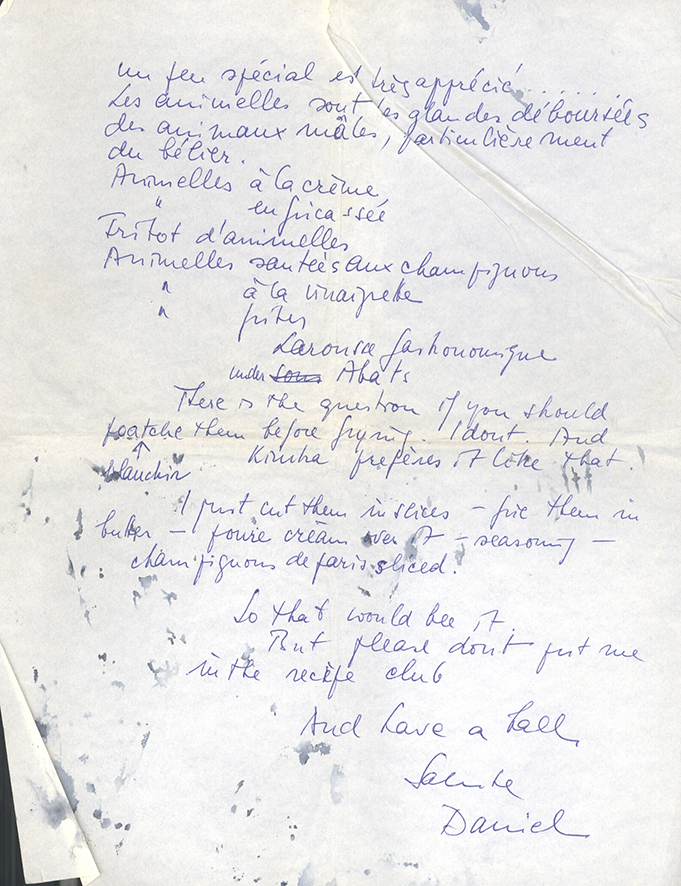 un jeu spécial est très apprécié.......
Les animelles sont les glandes déboursées
des animaux mâles, particulièrement
du bélier.
Animelles à la crème
" en fricassée
Fritot d'animelles
Animelles sautées aux champignons
" à la vinaigrette
" frites
Larousse Gastronomique
under sous Abats
There is the question if you should
poatche them before frying. I dont. And
blanchir Kimka prefères it like that.
I just cut them in slices – frie them in
butter – poure creàm over it – seasoning –
champignons de paris sliced.
So that would bee it.
But please don't put me
in the recipe club
And have a ball,
Salute
Daniel